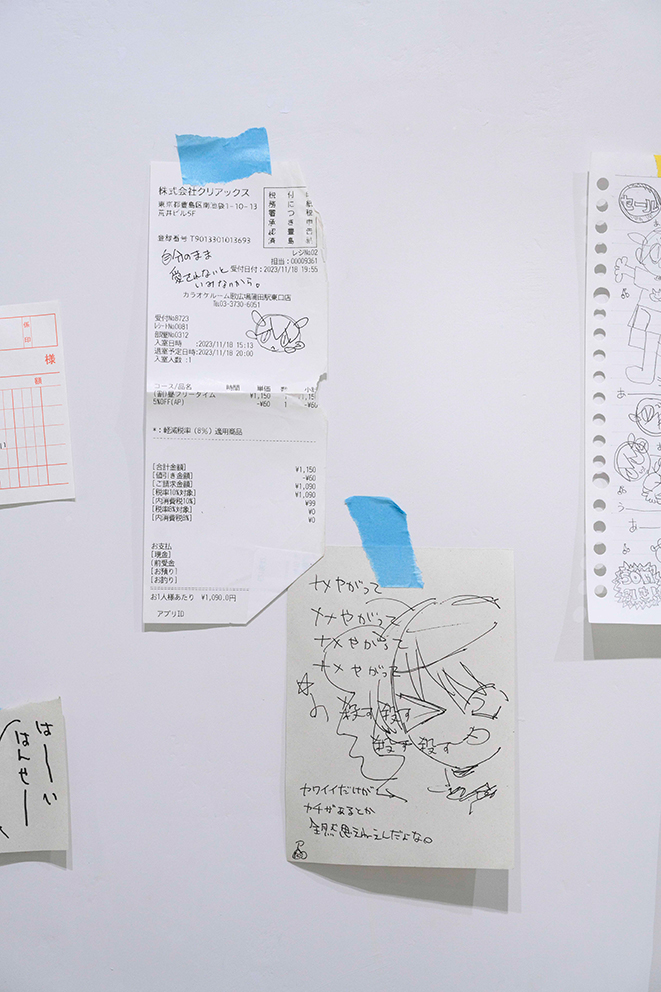 株式会社クリアックス
東京都豊島区南池袋1-10-13
荒井ビル5F
税 付 に
務 につ 紙
署 き 税
承 豊 申
認 島 告
済 納
登録番号 T9013301013693
レジNo02
担当:00009361
自分のまま
受付日付:2023/11/18 19:55
愛されないと
いみないから。
カラオケルーム歌広場蒲田駅東口店
℡03-3730-6051
受付No8723
ﾚｼｰﾄNo0081
部屋No0312
入室日時 :2023/11/18 15:13
退室予定日時:2023/11/18 20:00
入室人数 :1
コース/品名 時間 単価 数 小計
(割)昼フリータイム ¥1,150 1 ¥1,15
5%OFF(AP) -¥60 1 -¥60
*:軽減税率(8%)適用商品
[合計金額] ¥1,150
[値引き金額] -¥60
[ご請求金額] ¥1,090
[税率10%対象] ¥1,090
[内消費税10%] ¥99
[税率8%対象] ¥0
[内消費税8%] ¥0
お支払
[現金]
[前受金
[お預り]
[お釣り]
お1人様あたり ¥1,090.0円
アプリID
ナメやがって
ナメやがって
ナメやがって
ナメやがって
殺す殺す
殺す殺す
カワイイだけが
カチがあるとか
全然思えねえんだよな。
係印
様
額
はーい
はんせー
セール
あー
うー